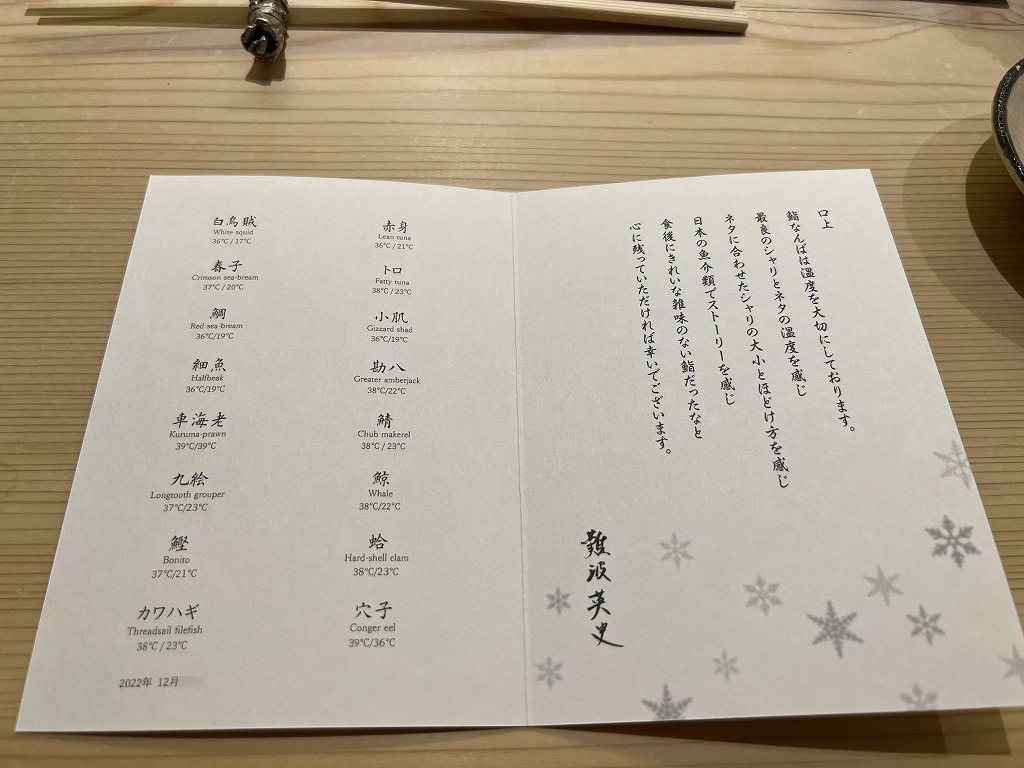 白烏賊
White squid
36℃ / 17℃
春子
Crimson sea-bream
37℃ / 20℃
鯛
Red sea-bream
36℃/19℃
細魚
Halfbeak
36℃/19℃
車海老
Kuruma-prawn
39℃/39℃
九絵
Longtooth grouper
37℃/23℃
鰹
Bonito
37℃/21℃
カワハギ
Threadsail filefish
38℃ / 23℃
2022年 12月
赤身
Lean tuna
36℃ / 21℃
トロ
Fatty tuna
38℃ / 23℃
小肌
Gizzard shad
36℃/19℃
勘八
Greater amberjack
38℃/22℃
鯖
Chub makerel
38℃ / 23℃
鯨
Whale
38℃/22℃
蛤
Hard-shell clam
38℃/23℃
穴子
Conger eel
39℃/36℃
口上
鮨なんばは温度を大切にしております。
最良のシャリとネタの温度を感じ
ネタに合わせたシャリの大小とほどけ方を感じ
日本の魚介類でストーリーを感じ
食後にきれいな雑味のない鮨だったなと
心に残っていただければ幸いでございます。
難波英史